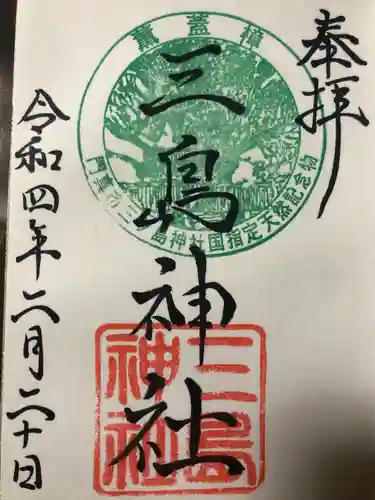 奉拝
三島神社
令和四年二月二十日
薫蓋樟
門真市三ツ島神社国指定天然記念物
三島神社